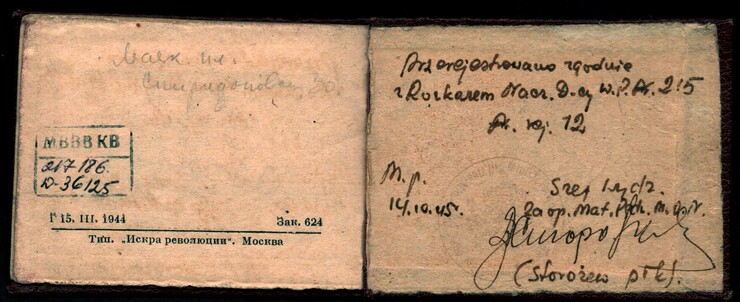 Маяк пл.
30.
МВВВ КВ
217186.
D-36125
Г 15. III. 1944 Зак. 624
Тип. „Искра революции“. Москва
Przerejestrowano zgodnie
z Rozkazem Nacz. D-cy W.P. Nr. 215
Nr. rej. 12
M.p.
14.10.45.
Szef Wydz.
Zaop. Mat.
(Storożew płk).